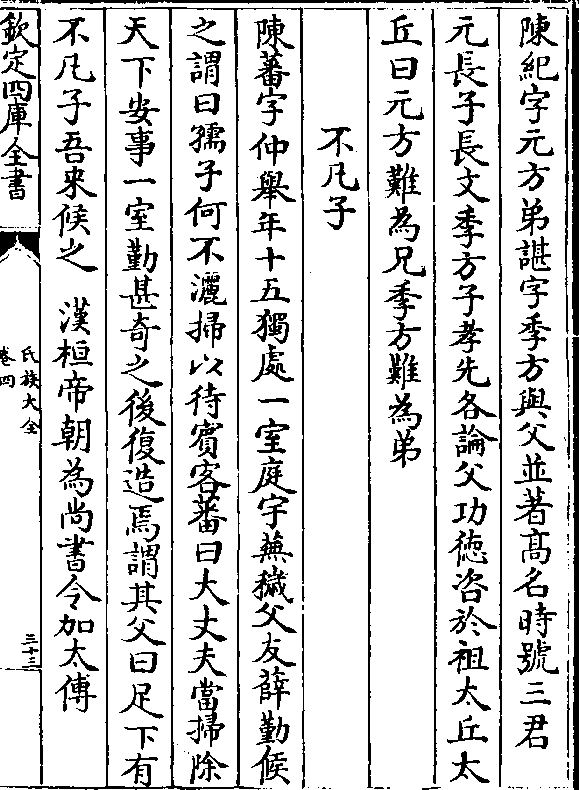 陳紀字元方弟諶字季方與父並著髙名時號三君
元長子長文季方子孝先各論父功徳咨於祖太丘太
丘曰元方難為兄季方難為弟
不凡子
陳蕃字仲舉年十五獨處一室庭宇蕪穢父友薛勤候
之謂曰孺子何不灑掃以待賓客蕃曰大丈夫當掃除
天下安事一室勤甚竒之後復造焉謂其父曰足下有
不凡子吾來候之　漢桓帝朝為尚書令加太傅
欽定四庫全書
氏族大全
卷四
三十三